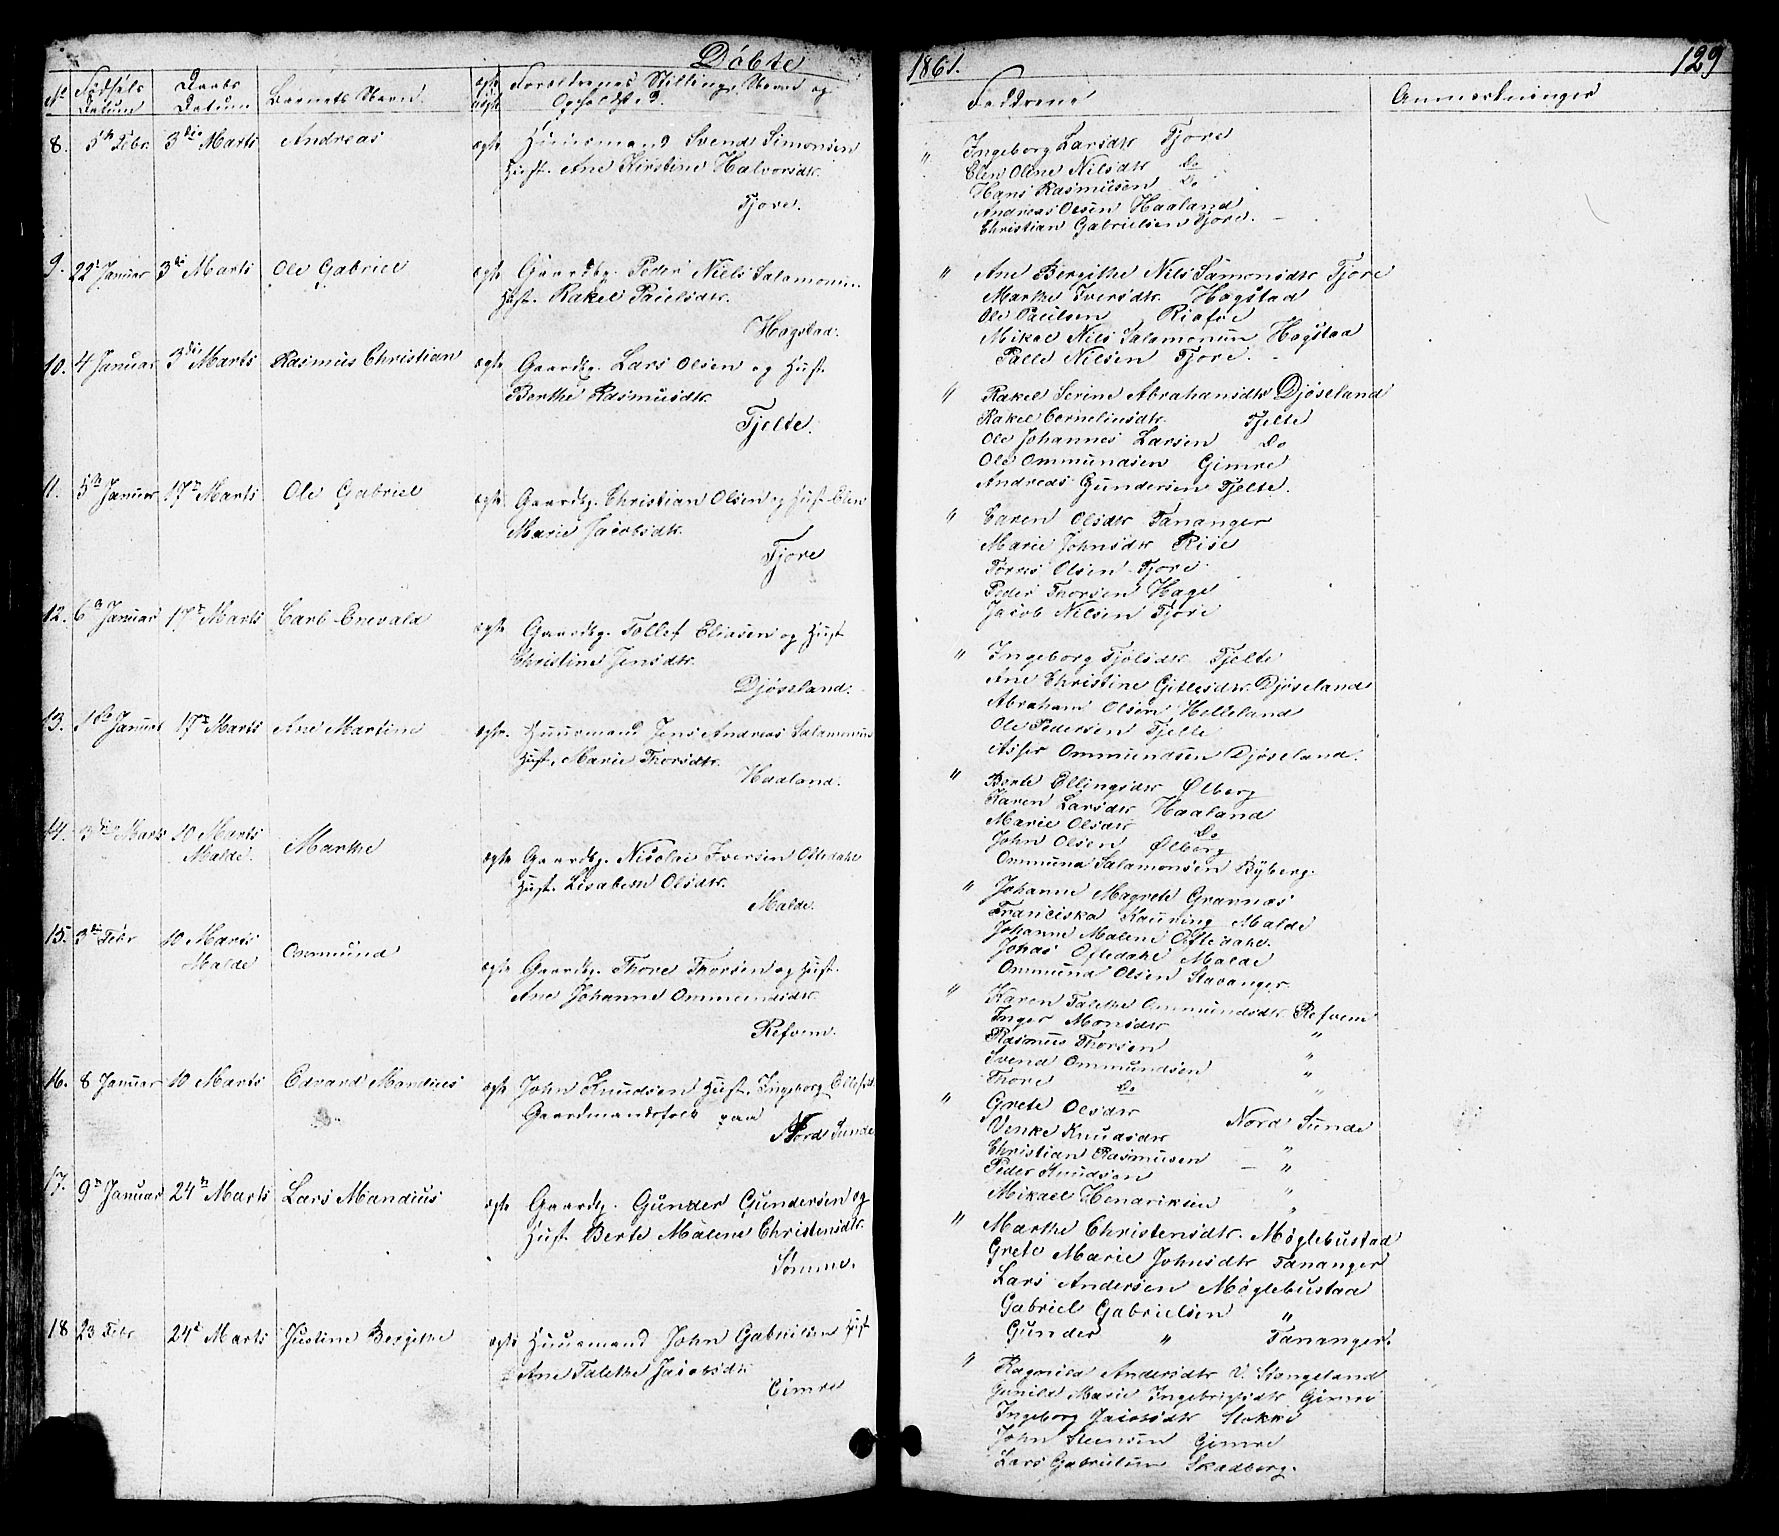 Döbte
1861.
129
No
Födsels Datum
Daabs Datum
Barnets Navn.
ægte uægte
Forældrenes Stilling, Navn og Opholdssted.
Faddrene
Anmærkninger
8. 5te Febr. 3die Marts Andreas ægte Huusmand Svend Simonsen
Hust. Ane Kirstine Halvorsdtr.
Tjore.
" Ingeborg Larsdtr Tjore
Elen Oline Nilsdtr Do
Hans Rasmussen Do
Andreas Olsen Haaland
Christian Gabrielsen Tjore.
9. 22 Januar 3di Marts Ole Gabriel ægte Gaardbg. Peder Niels Salamonsen
Hust. Rakel Paulsdtr.
Hogstad.
" Ane Bergithe Nils Samonsdtr Tjore
Marthe Iversdtr. Hogstad
Ole Paulsen Risføe
Mikal Nils Salamonsen Hogstaa
Palle Nilsen Tjore.
10. 4 Januar 3die Marts Rasmus Christian ægte Gaardbg. Lars Olsen og Hust.
Berthe Rasmusdtr.
Tjelte.
" Rakel Serine Abrahamsdtr Djöseland
Rakel Corneliusdtr. Tjelte
Ole Johannes Larsen Do
Ole Ommundsen Gimre
Andreas Gundersen Tjelte.
11. 5te Januar 17de Marts Ole Gabriel ægte Gaardbg. Christian Olsen og Hust. Elen
Marie Jacobsdtr.
Tjore
" Caren Olsdtr Tananger
Marie Johnsdtr Risi
Torres Olsen Tjore
Peder Thorsen Hage
Jacob Nilsen Tjore
12. 6te Januar 17de Marts Carl Enevald ægte Gaardbg. Tollef Eliasen og Hust
Christine Jensdtr.
Djöseland.
" Ingeborg Tjölsdtr Tjelte
Ane Christine Gitlesdtr. Djöseland
Abraham Olsen Helleland
Ole Pedersen Tjelte
Asser Ommundsen Djöseland.
13. 1ste Januar 17de Marts Ane Martine ægte. Huusmand Jens Andreas Salamonsen
Hust. Marie Thorsdtr.
Haaland.
" Berte Ellingsdtr Ølberg
Karen Larsdtr Haaland
Marie Olsdtr Do
John Olsen Ølberg
Ommund Salamonsen Byberg.
14. 3die Marts 10 Marts Malde. Marthe ægte Gaardbg. Nicolai Iversen Oftedahl
Hust. Lisabeth Olsdtr.
Malde.
" Johanne Magrete Grannæs
Franciska Kauring Malde
Johanne Malene Oftedahl.
Johas Oftedahl Malde
Ommund Olsen Stavanger.
15. 3die Febr 10 Marts Malde Ommund ægte Gaardbg. Thore Thorsen og Hust.
Ane Johanne Ommundsdtr.
Refvem.
" Karen Talethe Ommundsdtr Refvem
Inger Monsdtr
Rasmus Thorsen "
Svend Ommundsen "
Thore Do "
16. 8 Januar 10 Marts Edvard Mandius ægte John Knudsen Hust. Ingeborg Ellefsd
Gaardmandsfolk paa
Nord Sunde
" Grete Olsdtr Nord Sunde
Venke Knudsdtr
Christian Rasmusen "
Peder Knudsen "
Mikael Hendriksen "
17. 9de Januar 24de Marts Lars Mandius ægte Gaardbg. Gunder Gundersen og
Hust. Berte Malene Christensdtr.
Sömme.
" Marthe Christensdtr. Möglebustad
Grete Marie Johnsdtr Tananger
Lars Andersen Möglebustaa
Gabriel Gabrielsen "
Gunder " Tananger.
18 23 Febr 24de Marts Justine Bergithe ægte Huusmand John Gabrielsen Hust
Ane Talethe Jacobsdtr
Gimre
" Ragnild Andersdtr V. Stangeland
Gunild Marie Ingebrigtsdtr Gimre
Ingeborg Jacobsdtr Stokke
John Steensen Gimre
Lars Gabrielsen Skadberg.